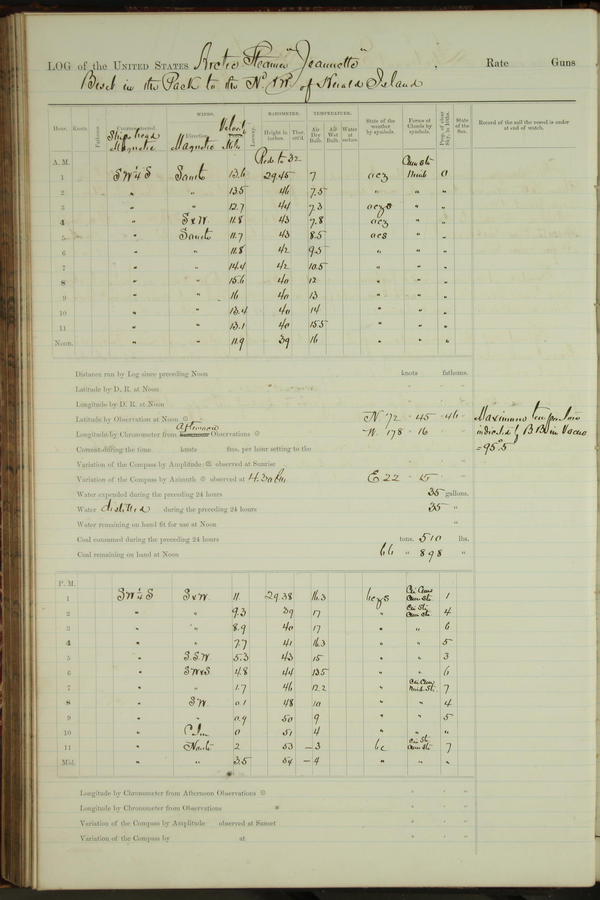 LOG of the UNITED STATES Arctic Steamer "Jeannette" Rate Guns
Beset in the Pack to the Nd & Wd of Herald Island
Hour. Knots. Fathoms. Ship's head Magnetic WINDS. Direction Magnetic Velocity Miles Leeway. BAROMETER. Height in inches. Ther. att'd. TEMPERATURE. Air Dry Bulb. Air Wet Bulb. Water at surface. State of the weather by symbols. Forms of Clouds by symbols. Prop. of clear Sky, in 10ths. State of the Sea. Record of the sail the vessel is under at end of watch.
A. M.
1 SW¼S South 13.6 29.45 7 0
2 " " 13.5 46 7.5 " " "
3 " " 12.7 44 7.3 " "
4 " SxW 11.8 43 7.8 " "
5 " South 11.7 43 8.5 " "
6 " " 11.8 42 9.5 " " "
7 " " 14.4 42 10.5 " " "
8 " " 15.6 40 12 " " "
9 " " 16 40 13 " " "
10 " " 13.4 40 14 " " "
11 " " 13.1 40 15.5 " " "
Noon. " " 11.9 39 16 " " "
Distance run by Log since preceding Noon knots fathoms.
Latitude by D. R. at Noon
Longitude by D. R. at Noon
Latitude by Observation at Noon N 72 45 46
Longitude by Chronometer from Afternoon Observations W 178 16
Current during the time knots fms. per hour setting to the
Variation of the Compass by Amplitude observed at Sunrise
Variation of the Compass by Azimuth observed at 4.30 P.M. E 22 15
Water expended during the preceding 24 hours 35 gallons.
Water distilled during the preceding 24 hours 35 "
Water remaining on hand fit for use at Noon "
Coal consumed during the preceding 24 hours tons. 510 lbs.
Coal remaining on hand at Noon 66 " 898 "
Maximum temperature
indicated by B.B. in Vacuo
= 95°.5
P. M.
1 SW¼S SxW. 11. 29.38 16.3 bczs 1
2 " " 9.3 39 17 " 4
3 " " 8.9 40 17 " " 6
4 " " 7.7 41 16.3 " " 5
5 " S.S.W. 5.3 43 15 " " 3
6 " SWxS 4.8 44 13.5 " " 6
7 " " 1.7 46 12.2 " 7
8 " SW. 0.1 48 10 " " 4
9 " " 0.9 50 9 " " 5
10 " Calm 0 51 4 " " "
11 " North 2 53 –3 bc 7
Mid. " " 3.5 54 –4 " " "
Longitude by Chronometer from Afternoon Observations
Longitude by Chronometer from Observations
Variation of the Compass by Amplitude observed at Sunset
Variation of the Compass by at